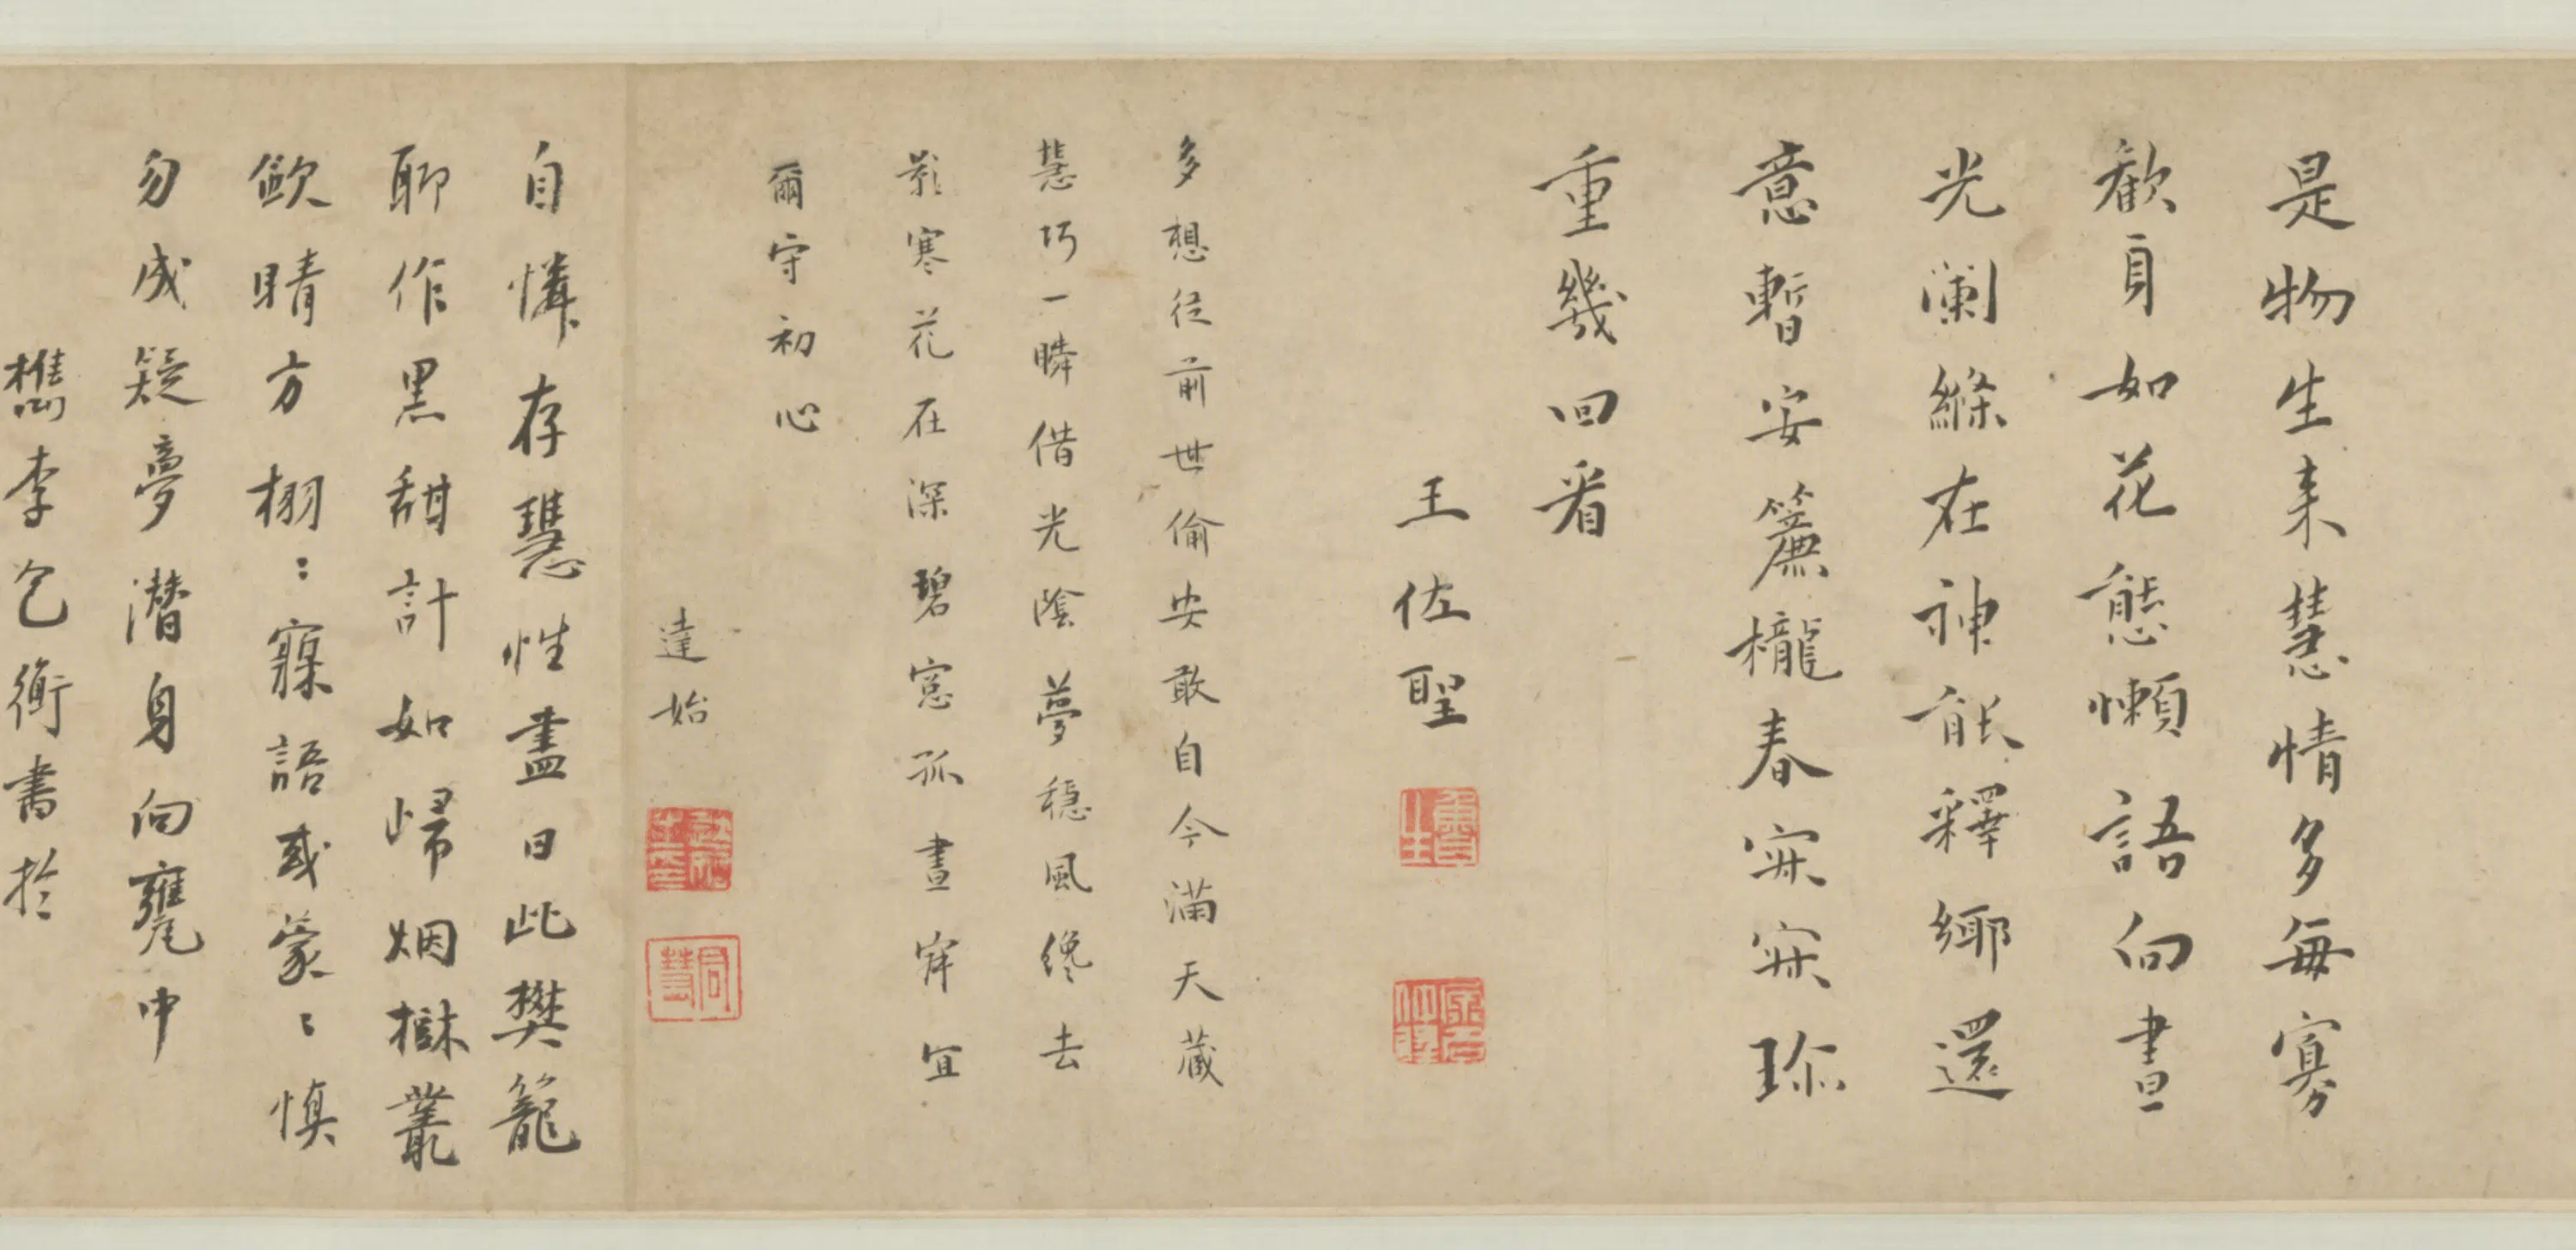 是物生来慧情多每寡
歡身如花態懶語向晝
光闌絛在神能釋緣還
意暫安簾櫳春寂寂珎
重幾回看
王佐聖
多想從前世偷安敢自今滿天藏
慧巧一瞬借光陰夢穩風纔去
影寒花在深碧窓孤晝寐宜
爾守初心
達始
同慧
自憐存慧性盡日此樊籠
聊作黑甜計如歸烟樾叢
歛睛方栩〻寱語或蒙〻慎
勿成疑夢潛身向甕中
檇李包衡書於